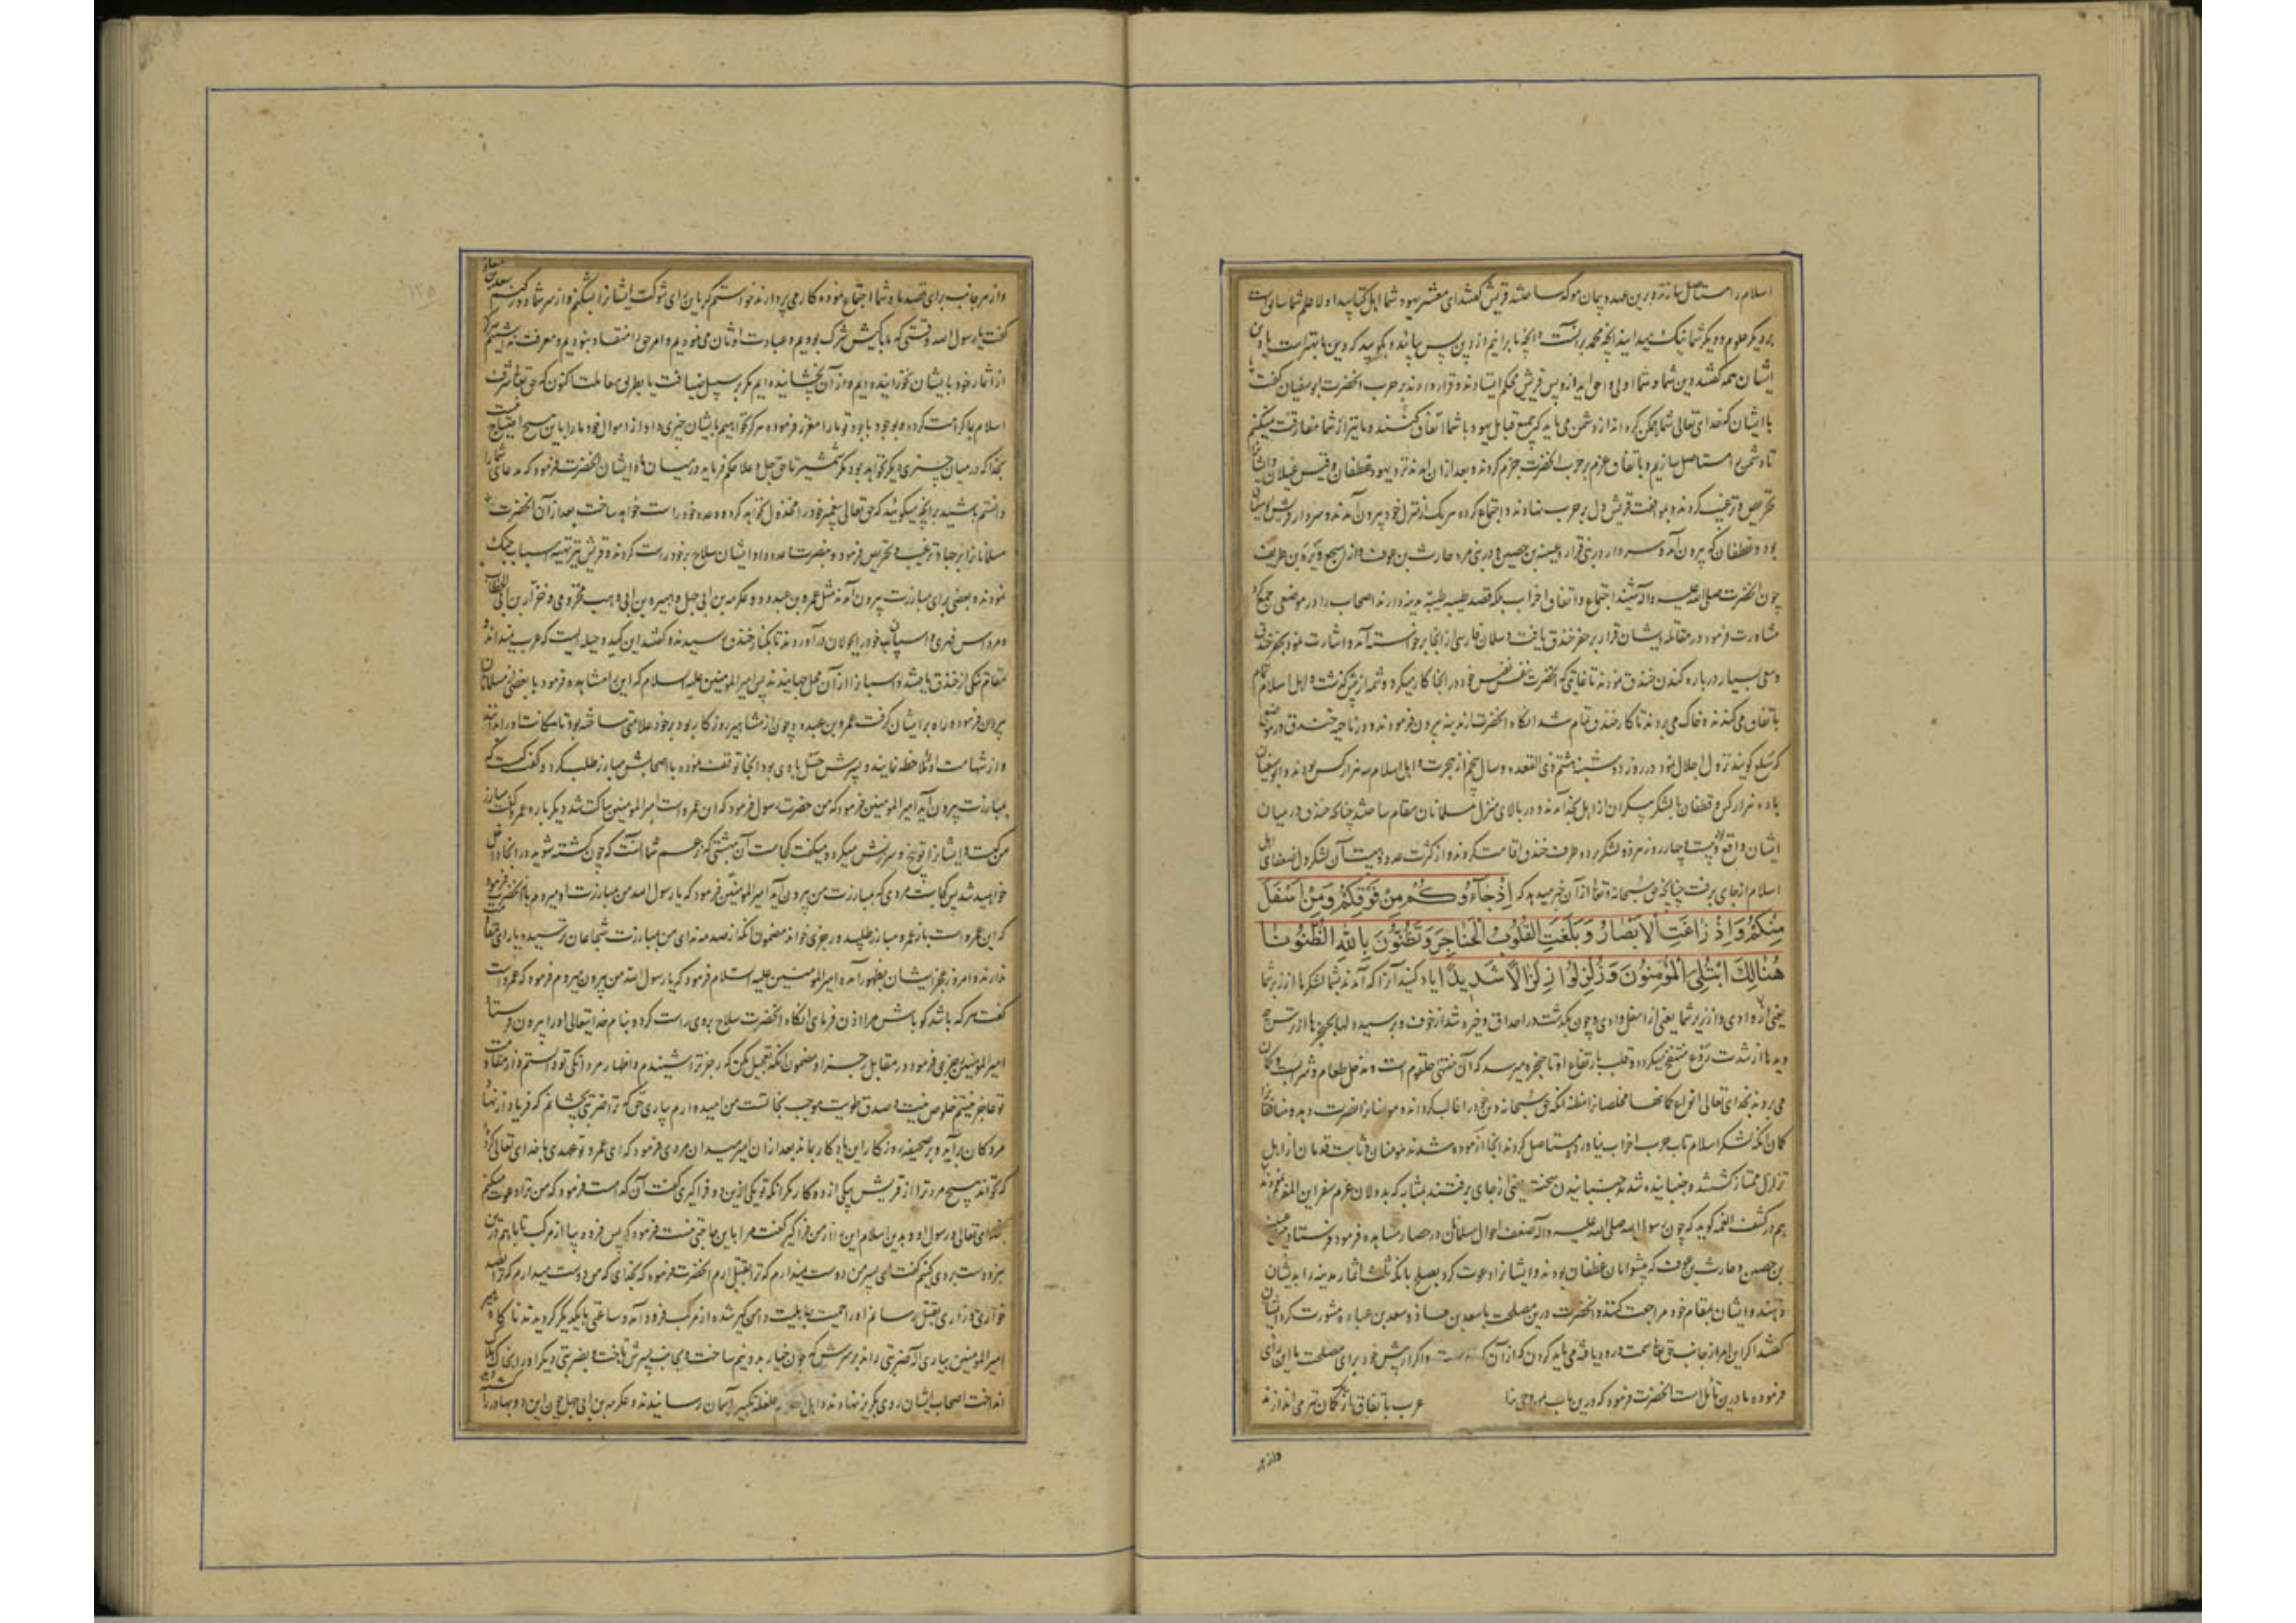 اسلام را مستاصل سازند و برین عهد و پیمان موکد ساختند قریش گفتند ای معشر یهود شما اهل کتابید اولا علم شما سابق است
بر دیگر علوم و دیگر شما نیک میدانید آنچه محمد بر آنست و آنچه ما برانیم از دین پس بما بگویید که دین ما بهتر است یا دین
ایشان همه گفتند دین شما و شما اولی و احق اید ازو پس قریش محکم ایستادند و قرار دادند بر حرب آنحضرت ابوسفیان گفت
با ایشان که خدای تعالی شما را ممکن کرد از دشمن می باید که جمیع قبایل یهود با شما اتفاق کنند و ما نیز از شما مفارقت نمیکنیم
تا دشمن را مستاصل سازیم و باتفاق عزم بر حرب آنحضرت جزم کردند و بعد از آن آمدند نزد یهود غطفان و قیس غیلان و ایشان را
تحریص و ترغیب کردند و بموافقت قریش دل بر حرب نهادند و اجتماع کرده هر یک از منزل خود بیرون آمدند و سردار قریش ابوسفیان
بود و غطفان که بیرون آمد و سردار در بنی فزاره عیینه بن حصین و در بنی مره حارث بن عوف و از اشجع وبره بن طریف
چون آنحضرت صلی الله علیه و اله شنید اجتماع و اتفاق احزاب بلکه قصد طیبه طیبه مدینه دارند اصحاب را در موضعی جمع کرد
مشاورت فرمود در مقاتله ایشان قرار بر حفر خندق یافت و سلمان فارسی از آنجا برخواسته آمد و اشارت نمود بحفر خندق
و سعی بسیار درباره کندن خندق نمودند تا غایتی که آنحضرت بنفس نفیس خود در آنجا کار میکرد و شمه ازین گذشت و اهل اسلام تمام
باتفاق می کندند و خاک می بردند تا کار خندق تمام شد آنگاه آنحضرت از مدینه بیرون فرمودند و در ناحیه خندق در موضعی
که سلع گویند نزول اجلال نمود در روز دوشنبه هشتم ذی القعده و سال پنجم از هجرت و اهل اسلام سه هزار کس بودند و ابوسفیان
با ده هزار کس و غطفان با لشکر بیکران از اهل نجد آمدند و در بالای منزل مسلمانان مقام ساختند چنانکه خندق در میان
ایشان واقع بود بیست و چهار روز هر دو لشکر بر دو طرف خندق اقامت کردند و از کثرت عدد و هیبت آن لشکر دل ضعفای اهل
اسلام از جای برفت چنانچه حق سبحانه و تعالی از آن خبر میدهد که اِذْ جَاءُوكُمْ مِنْ فَوْقِكُمْ وَمِنْ اَسْفَلَ
مِنْكُمْ وَاِذْ زَاغَتِ الْاَبْصَارُ وَبَلَغَتِ الْقُلُوبُ الْحَنَاجِرَ وَتَظُنُّونَ بِاللّٰهِ الظُّنُونَا
هُنَالِكَ ابْتُلِيَ الْمُؤْمِنُونَ وَزُلْزِلُوا زِلْزَالًا شَدِيدًا یاد کنید آنرا که آمدند بشما لشکرها از زبر شما
یعنی از وادی و از زیر شما یعنی از اسفل وادی و چون بگذشت در احداق و خیره شد از خوف و برسید دلها بحنجرها از ترس چه
دلها از شدت روع منتفخ میگردد و قلب بارتفاع او تا حنجره میرسد که آن منتهی حلقوم است و مدخل طعام و شراب است و گمان
می برید بخدای تعالی انواع گمانها مخلصان را مظنه آنکه حق سبحانه دین خود را غالب کرداند و مومنان را نصرت دهد و منافقان را
گمان آنکه لشکر اسلام تاب حرب احزاب نیاورد و مستاصل گردند آنجا آزموده شدند مومنان و ثابت قدمان از اهل
تزلزل ممتاز گشتند و جنبانیده شدند جنبانیدن سخت یعنی از جای برفتند بمثابه که بددلان عزم سفر این المفر نمودند
هم در کشف الغمه گوید که چون رسول الله صلی الله علیه و آله ضعف احوال مسلمانان در حصار مشاهده فرمود فرستاد عیینه
بن حصین و حارث بن عوف که پیشوایان غطفان بودند و ایشان را دعوت کرد بصلح بانکه ثلث اثمار مدینه را بدیشان
دهند و ایشان بمقام خود مراجعت کنند و آنحضرت درین مصلحت با سعد بن معاذ و سعد بن عباده مشورت کرد ایشان
گفتند اگر این امر از جانب حق تعالی است و رود یافته می باید کردن که از آن واگر از پیش خود برای مصلحت ما این رای
فرموده ما درین تامل است آنحضرت فرمود که درین باب بمن وحی عرب باتفاق از یک کمان تیر می اندازند
و از هر
و از هر جانب برای قصد ما و شما اجتماع نموده کار می پردازند خواستم که باین رای شوکت ایشان را بشکنم و از سر شما دور کنم سعد بن معاذ
گفت یا رسول الله وقتی که ما بکیش شرک بودیم و عبادت اوثان می نمودیم و امر حق را منقاد نبودیم و معرفت نداشتیم هرگز
از اثمار خود بایشان نخورانیده ایم و از آن نچشانیده ایم مگر بر سبیل ضیافت یا بطریق معاملت اکنون که حق تعالی شرف
اسلام بما کرامت کرده و بوجود با جود تو ما را معزز فرموده هرگز نخواهیم بایشان چیزی داد از اموال خود ما را باین صلح احتیاج نیست
بخدا که در میان چیزی دیگر نخواهد بود مگر شمشیر تا حق جل و علا حکم فرماید در میان ما و ایشان آنحضرت فرمود که مدعای شما را
دانستم باشید بر آنچه میگوئید که حق تعالی پیغمبر خود را مخذول نخواهد کرد و وعده خود راست خواهد ساخت بعد از آن آنحضرت
مسلمانان را بر جهاد ترغیب و تحریص فرمود و بنصرت وعده داد و ایشان سلاح بر خود راست کردند و قریش نیز تهیه اسباب جنگ
نمودند و بعضی برای مبارزت بیرون آمدند مثل عمرو بن عبدود و عکرمه بن ابی جهل و هبیره بن ابی وهب مخزومی و ضرار بن الخطاب
و مرداس فهری و اسپان خود را بجولان درآوردند تا بکنار خندق رسیدند و گفتند این کید و حیله ایست که عرب نمیدانند
مقام تنگی از خندق یافتند و اسبان را از آن محل جهانیدند پس امیر المومنین علیه السلام که این را مشاهده فرمود با بعضی از مسلمانان
بیرون فرمود و راه بر ایشان گرفت عمرو بن عبدود چون از مشاهیر روزگار بود بر خود علامتی ساخته بود تا مکانت او را بدانند
و از شهامت او ملاحظه نمایند و پسرش حسل با وی بود آنجا توقف نموده با اصحابش مبارز طلب کرد و گفت کیست که
بمبارزت بیرون آید امیر المومنین فرمود که من حضرت رسول فرمود که آن عمرو است امیر المومنین ساکت شد دیگر باره عمرو گفت مبارز
من کیست و ایشان را توبیخ و سرزنش میکرد و میگفت کجاست آن بهشتی که زعم شما آنست که چون کشته شوید در آنجا داخل
خواهید شد پس کجاست مردی که بمبارزت من بیرون آید امیر المومنین فرمود که یا رسول الله من مبارزت او میروم باز آنحضرت فرمود
که این عمرو است باز عمرو مبارز طلبید و رجزی خواند مضمون آنکه از صدمه ندای من بمبارزت شجاعان ترسیده یارای مقاومت
ندارند و امروز عجز ایشان بظهور آمد و امیر المومنین علیه السلام فرمود که یا رسول الله من بیرون میروم فرمود که عمرو است
گفت هر که باشد گو باش مرا اذن فرمای آنگاه آنحضرت سلاح بر وی راست کرد و بنام خدایتعالی او را بیرون فرستاد
امیر المومنین رجزی فرمود در مقابل رجز او مضمون آنکه تعجیل مکن که رجز ترا شنیدم و اظهار مردانگی تو دانستم و از مقاومت
تو عاجز نیستم خلوص نیت و صدق طویت موجب نجات است من امیدوارم بیاری حق که ترا ضربتی بچشانم که فریاد از نهاد
مردگان برآید و بر صحیفه روزگار این یادگار بماند بعد از آن امیر میدان مردی فرمود که ای عمرو تو عهدی با خدای تعالی کرده
که نخواند هیچ مرد ترا از قریش بیکی از دو کار مگر آنکه تو یکی از این دو فرا گیری گفت آن کدامست فرمود که من ترا دعوت میکنم
بخدای تعالی و رسول او و بدین اسلام این را از من فرا گیر گفت مرا باین حاجتی نیست فرمود که پس فرود بیا از مرکب تا با هم درین
نبرد دست بردی کنیم گفت ای پسر من دوست نمیدارم که ترا بقتل آرم آنحضرت فرمود که بخدای که من دوست میدارم که ترا بصد
خواری و زاری بقتل رسانم او را حمیت جاهلیت دامن گیر شده از مرکب فرود آمد و ساعتی با یکدیگر گردیدند ناگاه
امیر المومنین بیاری اله ضربتی راند بر سرش که چون خیار بدو نیم ساخت و بجانب پسرش تاخت و بضربتی دیگر او را بر خاک هلاک
انداخت اصحاب ایشان روی بگریز نهادند و اهل اسلام غلغله تکبیر بآسمان رسانیدند و عکرمه بن ابی جهل چون این دو بهادر را کشته دید